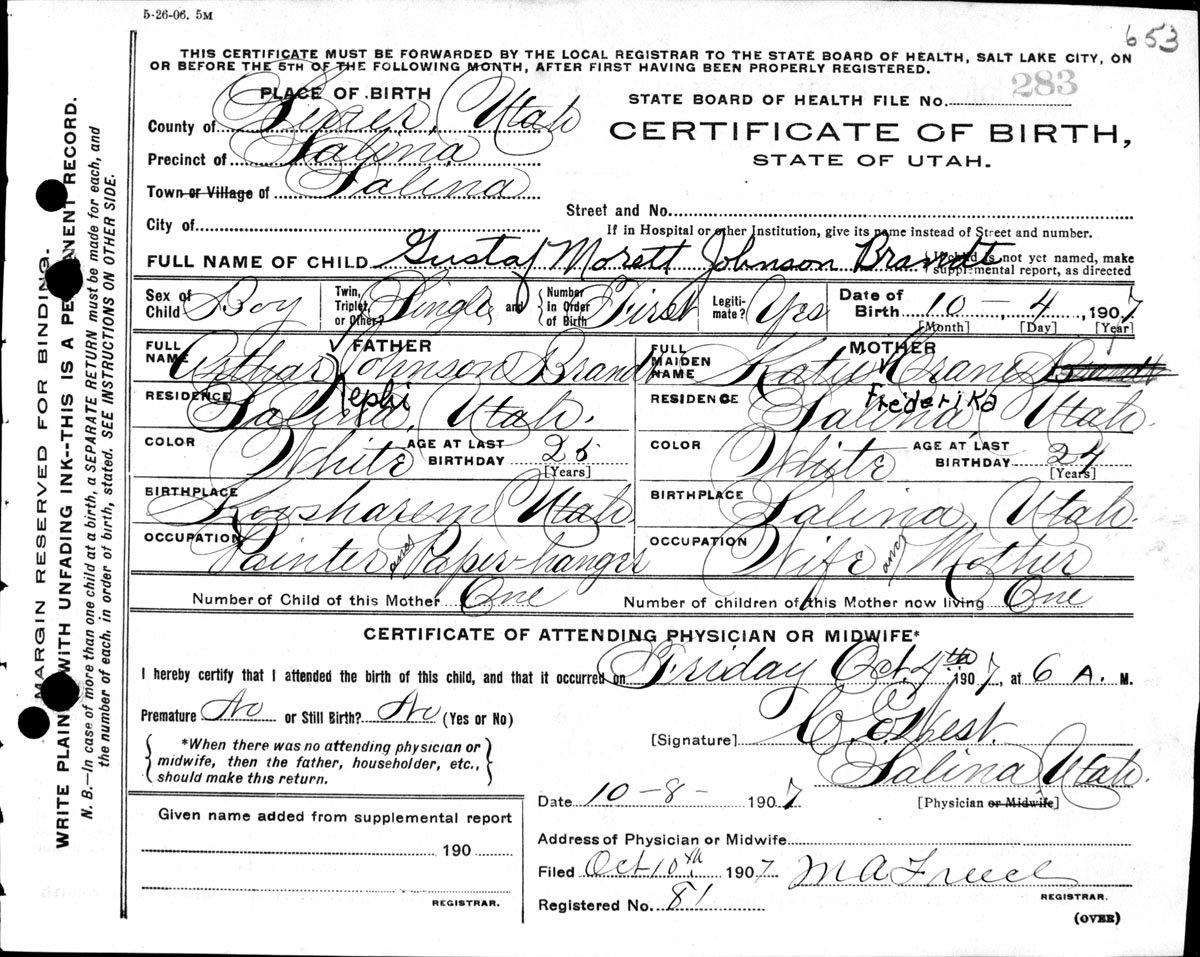 5-26-06. 5M
653
THIS CERTIFICATE MUST BE FORWARDED BY THE LOCAL REGISTRAR TO THE STATE BOARD OF HEALTH, SALT LAKE CITY, ON
OR BEFORE THE 5TH OF THE FOLLOWING MONTH, AFTER FIRST HAVING BEEN PROPERLY REGISTERED.
PLACE OF BIRTH
STATE BOARD OF HEALTH FILE No. 283
County of Sevier, Utah
CERTIFICATE OF BIRTH,
STATE OF UTAH.
Precinct of Salina
Town or Village of Salina
Street and No.
City of
If in Hospital or other Institution, give its name instead of Street and number.
FULL NAME OF CHILD Gustaf Morett Johnson Brandt
If child is not yet named, make
supplemental report, as directed
Sex of Child Boy Twin, Triplet, or Other? Single and Number in Order of Birth First Legiti-mate? Yes Date of Birth 10 - 4, 1907
[Month] [Day] [Year]
FATHER MOTHER
FULL NAME Arthur Johnson Brandt FULL MAIDEN NAME Katie Crane
Nephi Frederika
RESIDENCE Salina, Utah. RESIDENCE Salina, Utah.
COLOR White AGE AT LAST BIRTHDAY 25 [Years] COLOR White AGE AT LAST BIRTHDAY 24 [Years]
BIRTHPLACE Koosharem Utah. BIRTHPLACE Salina, Utah.
OCCUPATION Painter and Paper-hanger OCCUPATION Wife and Mother
Number of Child of this Mother One Number of children of this Mother now living One
CERTIFICATE OF ATTENDING PHYSICIAN OR MIDWIFE*
I hereby certify that I attended the birth of this child, and that it occurred on Friday Oct. 4th 1907, at 6 A. M.
Premature No or Still Birth? No (Yes or No)
[Signature] C. E. West.
*When there was no attending physician or
midwife, then the father, householder, etc.,
should make this return.
Salina Utah.
Date 10-8- 1907 [Physician or Midwife]
Given name added from supplemental report
190
REGISTRAR.
Address of Physician or Midwife
Filed Oct 10th, 1907
REGISTRAR.
Registered No. 81
(OVER)
MARGIN RESERVED FOR BINDING.
WRITE PLAINLY WITH UNFADING INK--THIS IS A PERMANENT RECORD.
N. B.—In case of more than one child at a birth, a SEPARATE RETURN must be made for each, and
the number of each, in order of birth, stated. SEE INSTRUCTIONS ON OTHER SIDE.